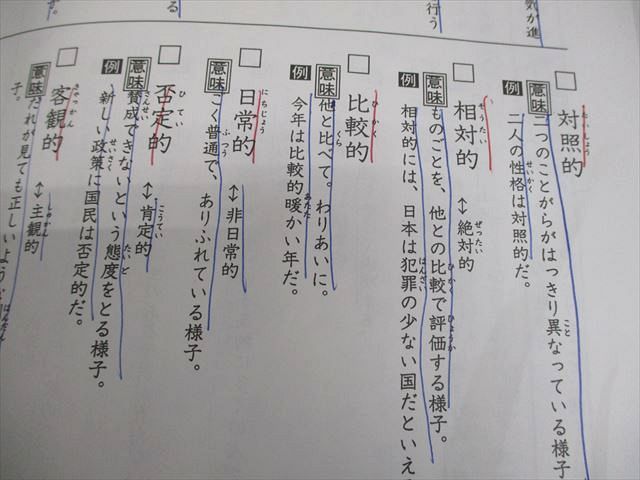 気が進
行う
る
ず。
対照的
意味 二つのことがらがはっきり異なっている様子
例 二人の性格は対照的だ。
相対的 ↕ 絶対的
意味 ものごとを、他との比較で評価する様子。
例 相対的には、日本は犯罪の少ない国だといえ
比較的
意味 他と比べて。わりあいに。
例 今年は比較的暖かい年だ。
日常的 ↕ 非日常的
意味 ごく普通で、ありふれている様子。
否定的 ↕ 肯定的
意味 賛成できないという態度をとる様子。
例 新しい政策に国民は否定的だ。
客観的 ↕ 主観的
意味 だれが見ても正しいよう
子。